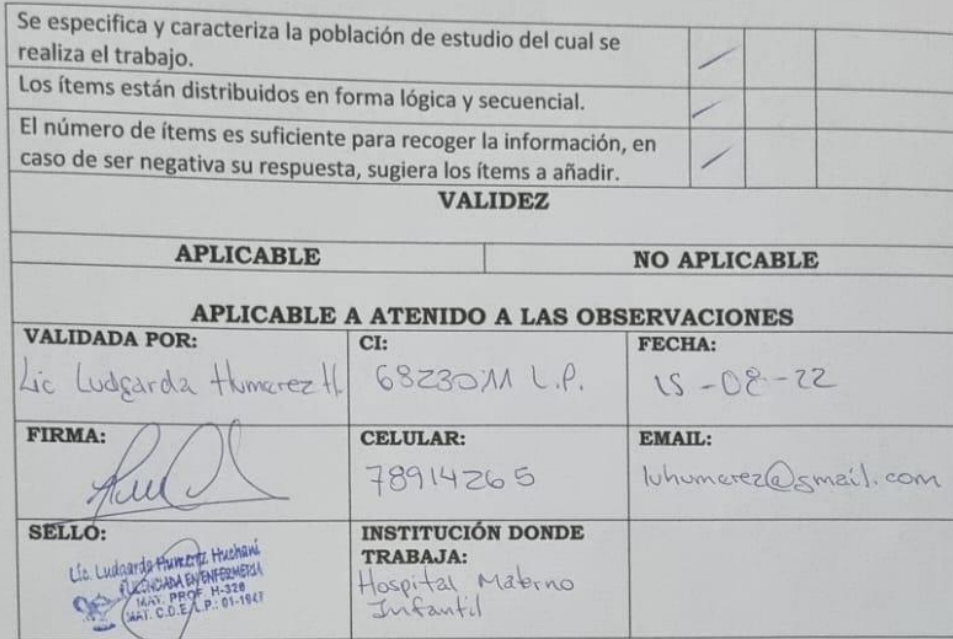 Se especifica y caracteriza la población de estudio del cual se
realiza el trabajo.
Los ítems están distribuidos en forma lógica y secuencial.
El número de ítems es suficiente para recoger la información, en
caso de ser negativa su respuesta, sugiera los ítems a añadir.
VALIDEZ
APLICABLE
NO APLICABLE
APLICABLE A ATENIDO A LAS OBSERVACIONES
VALIDADA POR:
Lic Ludgarda Humerez H.
CI:
6823011 L.P.
FECHA:
15-08-22
FIRMA:
CELULAR:
78914265
EMAIL:
luhumerez@gmail.com
SELLO:
Lic. Ludgarda Humerez Huchani
LICENCIADA EN ENFERMERIA
MAT. PROF. H-328
MAT. C.D.E.L.P.: 01-1947
INSTITUCIÓN DONDE
TRABAJA:
Hospital Materno
Infantil